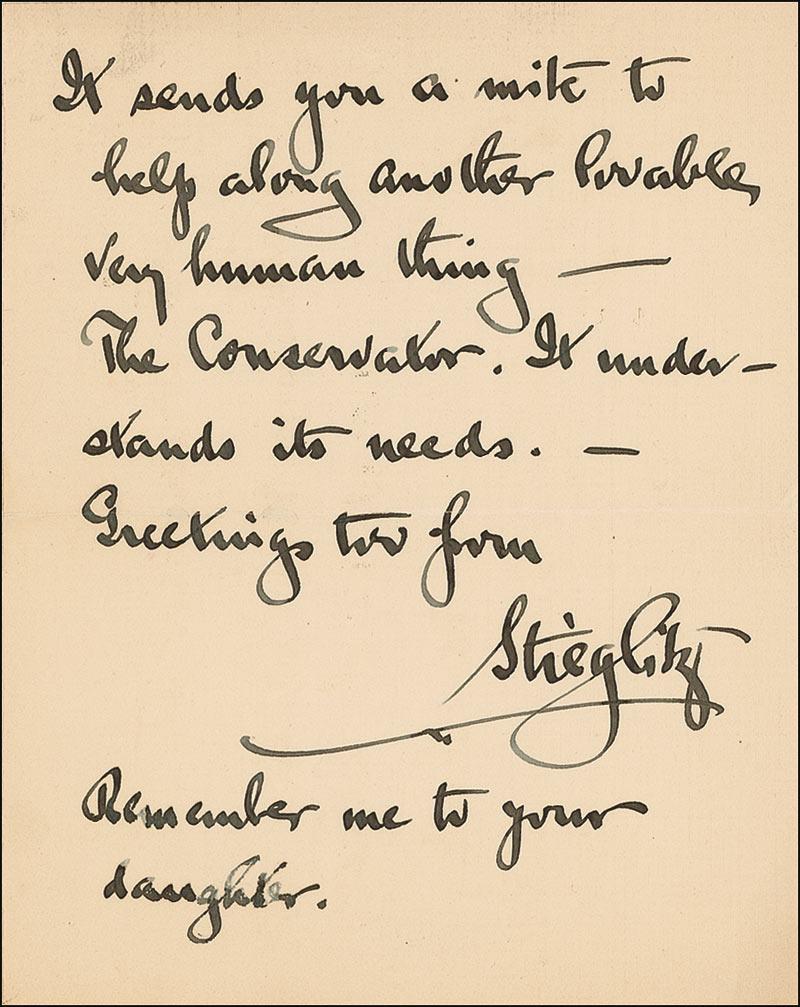 It sends you a mite to
help along another lovable,
very human thing —
The Conservator. It under-
stands its needs. —
Greetings too from
Stieglitz
Remember me to your
daughter.